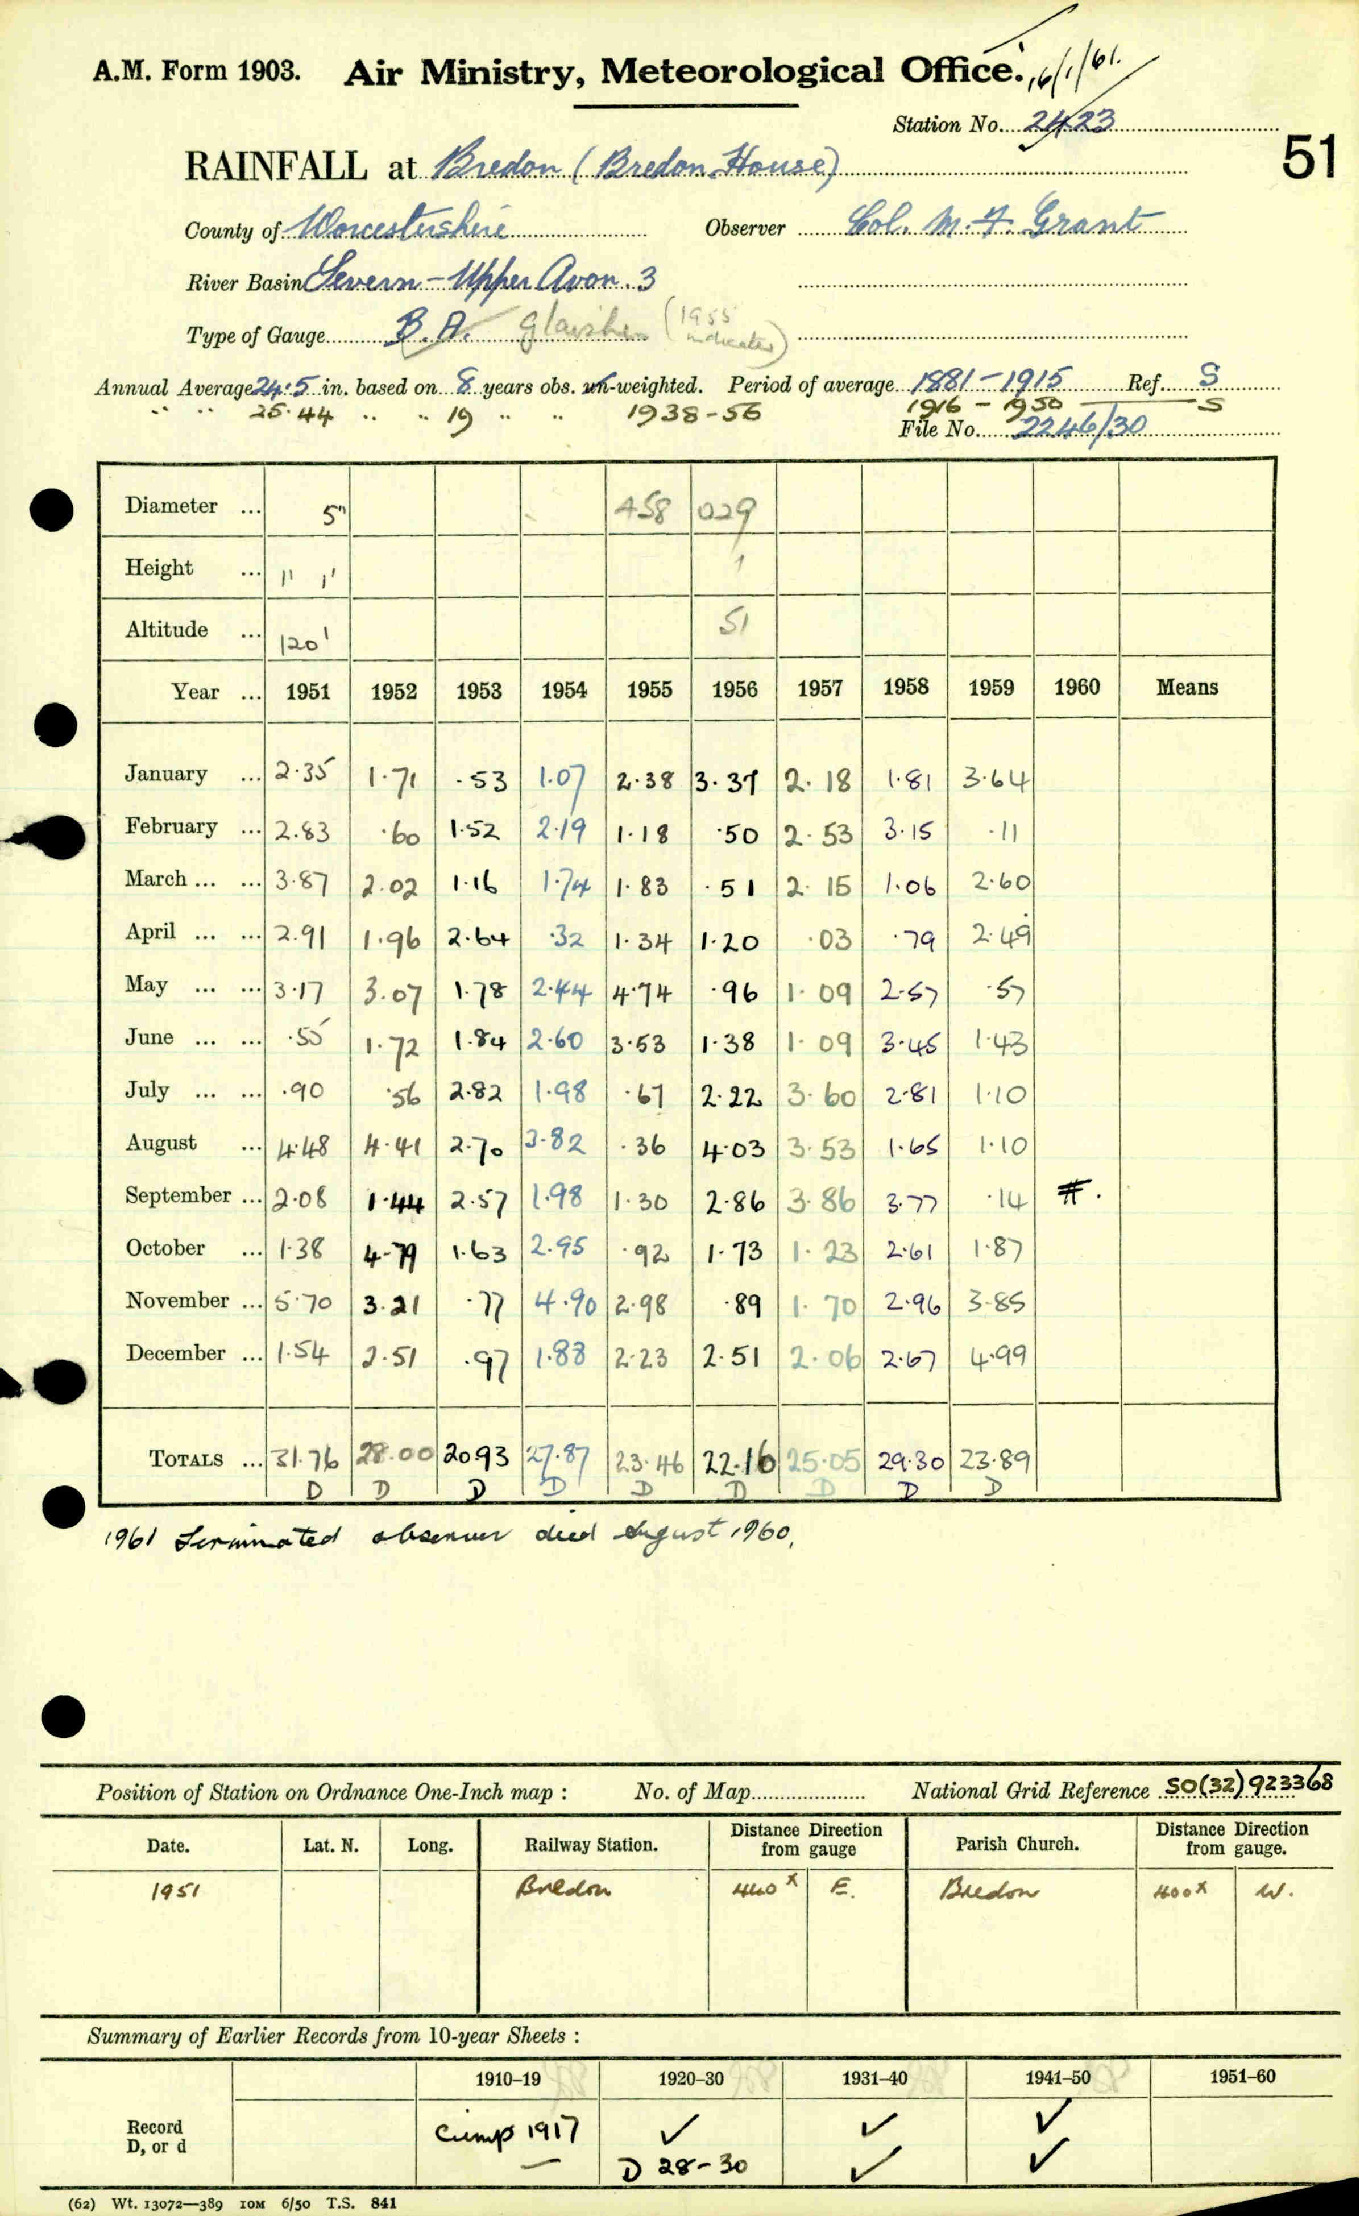 A.M. Form 1903. Air Ministry, Meteorological Office. 16/1/61.
Station No. 2423
51
RAINFALL at Bredon (Bredon House)
County of Worcestershire Observer Col. M. F. Grant
River Basin Severn - Upper Avon. 3
Type of Gauge B.A. Glaisher (1955 indicates)
Annual Average 24.5 in. based on 8 years obs. un-weighted. Period of average 1881-1915 Ref. S
" " 25.44 " " 19 " " 1938-56 1916-1950 S
File No. 2246/30
Diameter ... 5" 458 029
Height ... 1' 1' 1
Altitude ... 120' 51
Year ... 1951 1952 1953 1954 1955 1956 1957 1958 1959 1960 Means
January ... 2.35 1.71 .53 1.07 2.38 3.37 2.18 1.81 3.64
February ... 2.83 .60 1.52 2.19 1.18 .50 2.53 3.15 .11
March ... ... 3.87 2.02 1.16 1.74 1.83 .51 2.15 1.06 2.60
April ... ... 2.91 1.96 2.64 .32 1.34 1.20 .03 .79 2.49
May ... ... 3.17 3.07 1.78 2.44 4.74 .96 1.09 2.57 .57
June ... ... .55 1.72 1.84 2.60 3.53 1.38 1.09 3.45 1.43
July ... ... .90 .56 2.82 1.98 .67 2.22 3.60 2.81 1.10
August ... 4.48 4.41 2.70 3.82 .36 4.03 3.53 1.65 1.10
September ... 2.08 1.44 2.57 1.98 1.30 2.86 3.86 3.77 .14 #.
October ... 1.38 4.79 1.63 2.95 .92 1.73 1.23 2.61 1.87
November ... 5.70 3.21 .77 4.90 2.98 .89 1.70 2.96 3.85
December ... 1.54 2.51 .97 1.88 2.23 2.51 2.06 2.67 4.99
TOTALS ... 31.76 28.00 20.93 27.87 23.46 22.16 25.05 29.30 23.89
D D D D D D D D D
1961 Terminated observer died August 1960.
Position of Station on Ordnance One-Inch map : No. of Map National Grid Reference SO(32)923368
Date. Lat. N. Long. Railway Station. Distance Direction from gauge Parish Church. Distance Direction from gauge.
1951 Bredon 440x E. Bredon 400x W.
Summary of Earlier Records from 10-year Sheets :
1910-19 1920-30 1931-40 1941-50 1951-60
Record Cump 1917 ✓ ✓ ✓
D, or d — D 28-30 ✓ ✓
(62) Wt. 13072—389 10M 6/50 T.S. 841